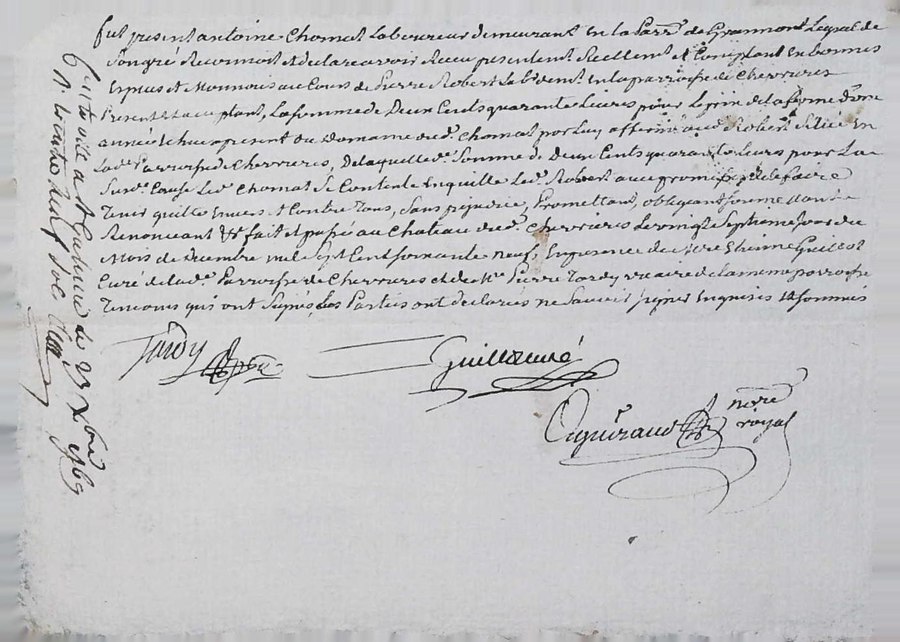 fut present antoine Chomat Laboureur demeurant en la parr.e de Grammont Lequel de
son gré Reconnoit et declare avoir Receu presentement Reellement et Comptant en bonnes
Especes et Monnoies au Cours de Pierre Robert Laboureur dem.t en la parroisse de Chevrieres
Present et acceptant, La somme de Deux Cents quarante Livres pour le prix de la ferme d'une
année Echue a present du Domaine dud. Chomat par Luy affermé aud. Robert Situé en
lad.e Parroisse de Chevrieres, De laquelle d.e Somme de Deux Cents quarante Livres pour La
Susd.e Cause Led. Chomat Se Contente En quitte Led. Robert avec promesse de le faire
Tenir quitte envers et Contre Tous, Sans prejudice, Promettant, obligeant soumettant
Renonceant &c fait et passé au Chateau dud. Chevrieres Le vingt Septieme jour du
Mois de Decembre mil Sept Cent soixante neuf, En presence de Messire Etienne Guillot
Curé de lad.e Parroisse de Chevrieres et de M.re Pierre Tardy vicaire de la meme parroisse
Temoins qui ont Signés, des Parties ont declarées ne Scavoir signer Enquises et sommées
Tardy
Guillot curé
nore
royal
1769